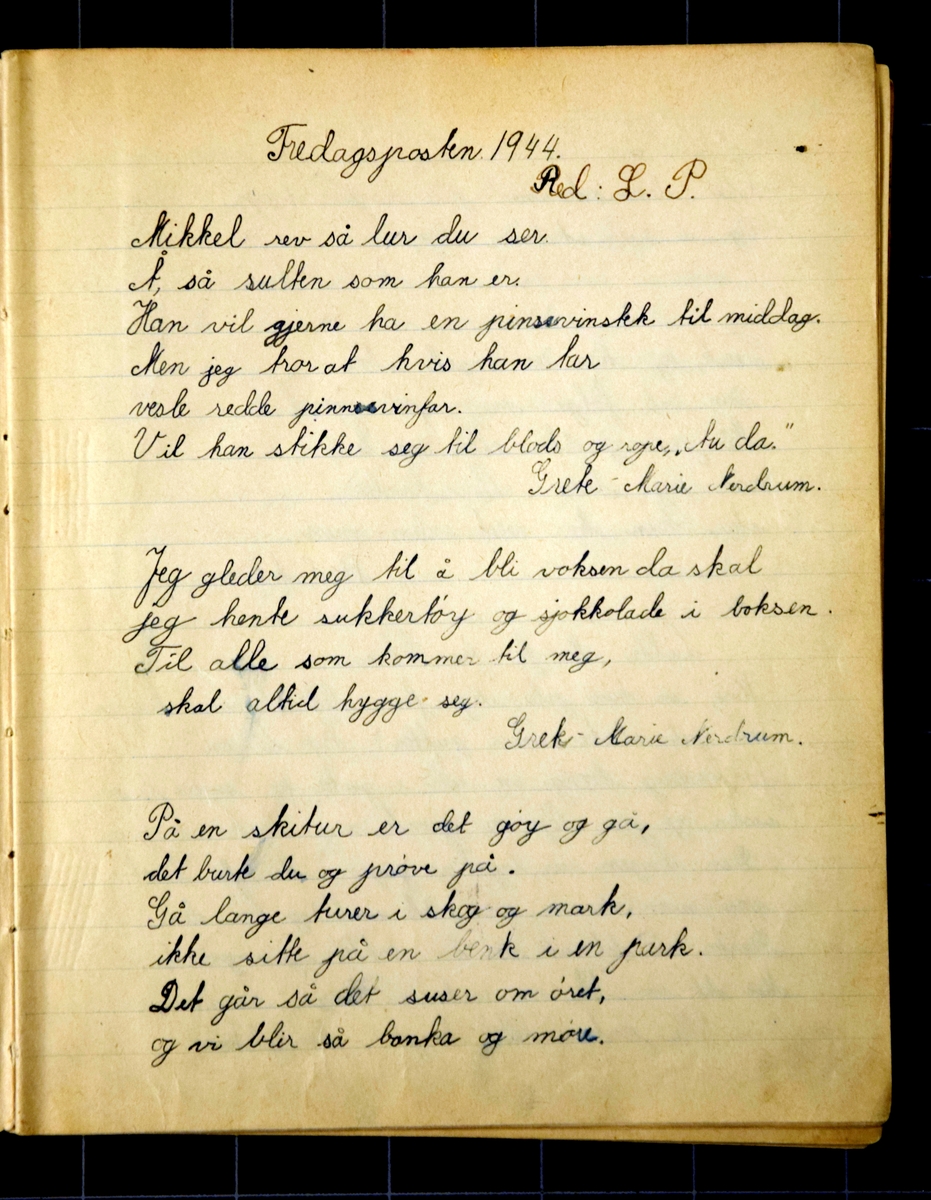 Fredagsposten 1944.
Red: L. P.
Mikkel rev så lur du ser.
Å, så sulten som han er.
Han vil gjerne ha en pinsevinstek til middag.
Men jeg tror at hvis han tar
vesle redde pinnsvinfar.
Vil han stikke seg til blods og rope, „Au da."
Grete-Marie Nerdrum.
Jeg gleder meg til å bli voksen da skal
jeg hente sukkertøy og sjokkolade i boksen.
Til alle som kommer til meg,
skal altid hygge seg.
Grete-Marie Nerdrum.
På en skitur er det gøy og gå,
det burte du og prøve på.
Gå lange turer i skog og mark,
ikke sitte på en benk i en park.
Det går så det suser om øret,
og vi blir så banka og møre.